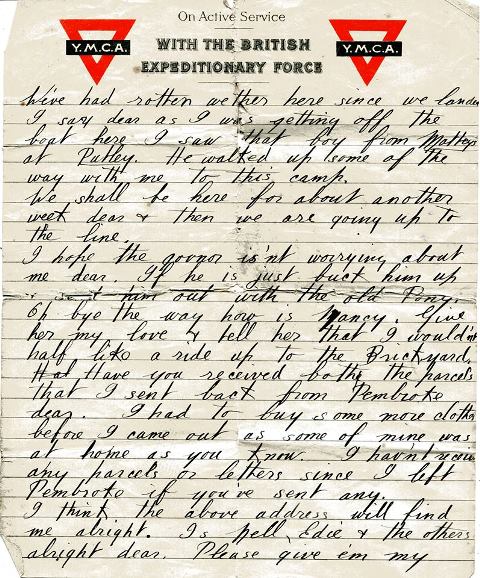 On Active Service
Y.M.C.A. WITH THE BRITISH Y.M.C.A.
EXPEDITIONARY FORCE
We've had rotten wether here since we landed
I say dear as I was getting off the
boat here I saw that boy from
at Putley. He walked up some of the
way with me to this camp.
We shall be here for about another
week dear & then we are going up to
the line.
I hope the govnor is'nt worrying about
me dear. If he is just buck him up
& him out with the old Pony.
Oh bye the way how is Nancy. Give
her my love & tell her that I wouldn't
half like a ride up to the Brickyard.
Have you received both the parcels
that I sent back from Pembroke
dear. I had to buy some more clothes
before I came out as some of mine was
at home as you know. I hav'nt
any parcels or letters since I left
Pembroke if you've sent any.
I think the above address will find
me alright. Is Nell, Edie & the others
alright dear. Please give em my